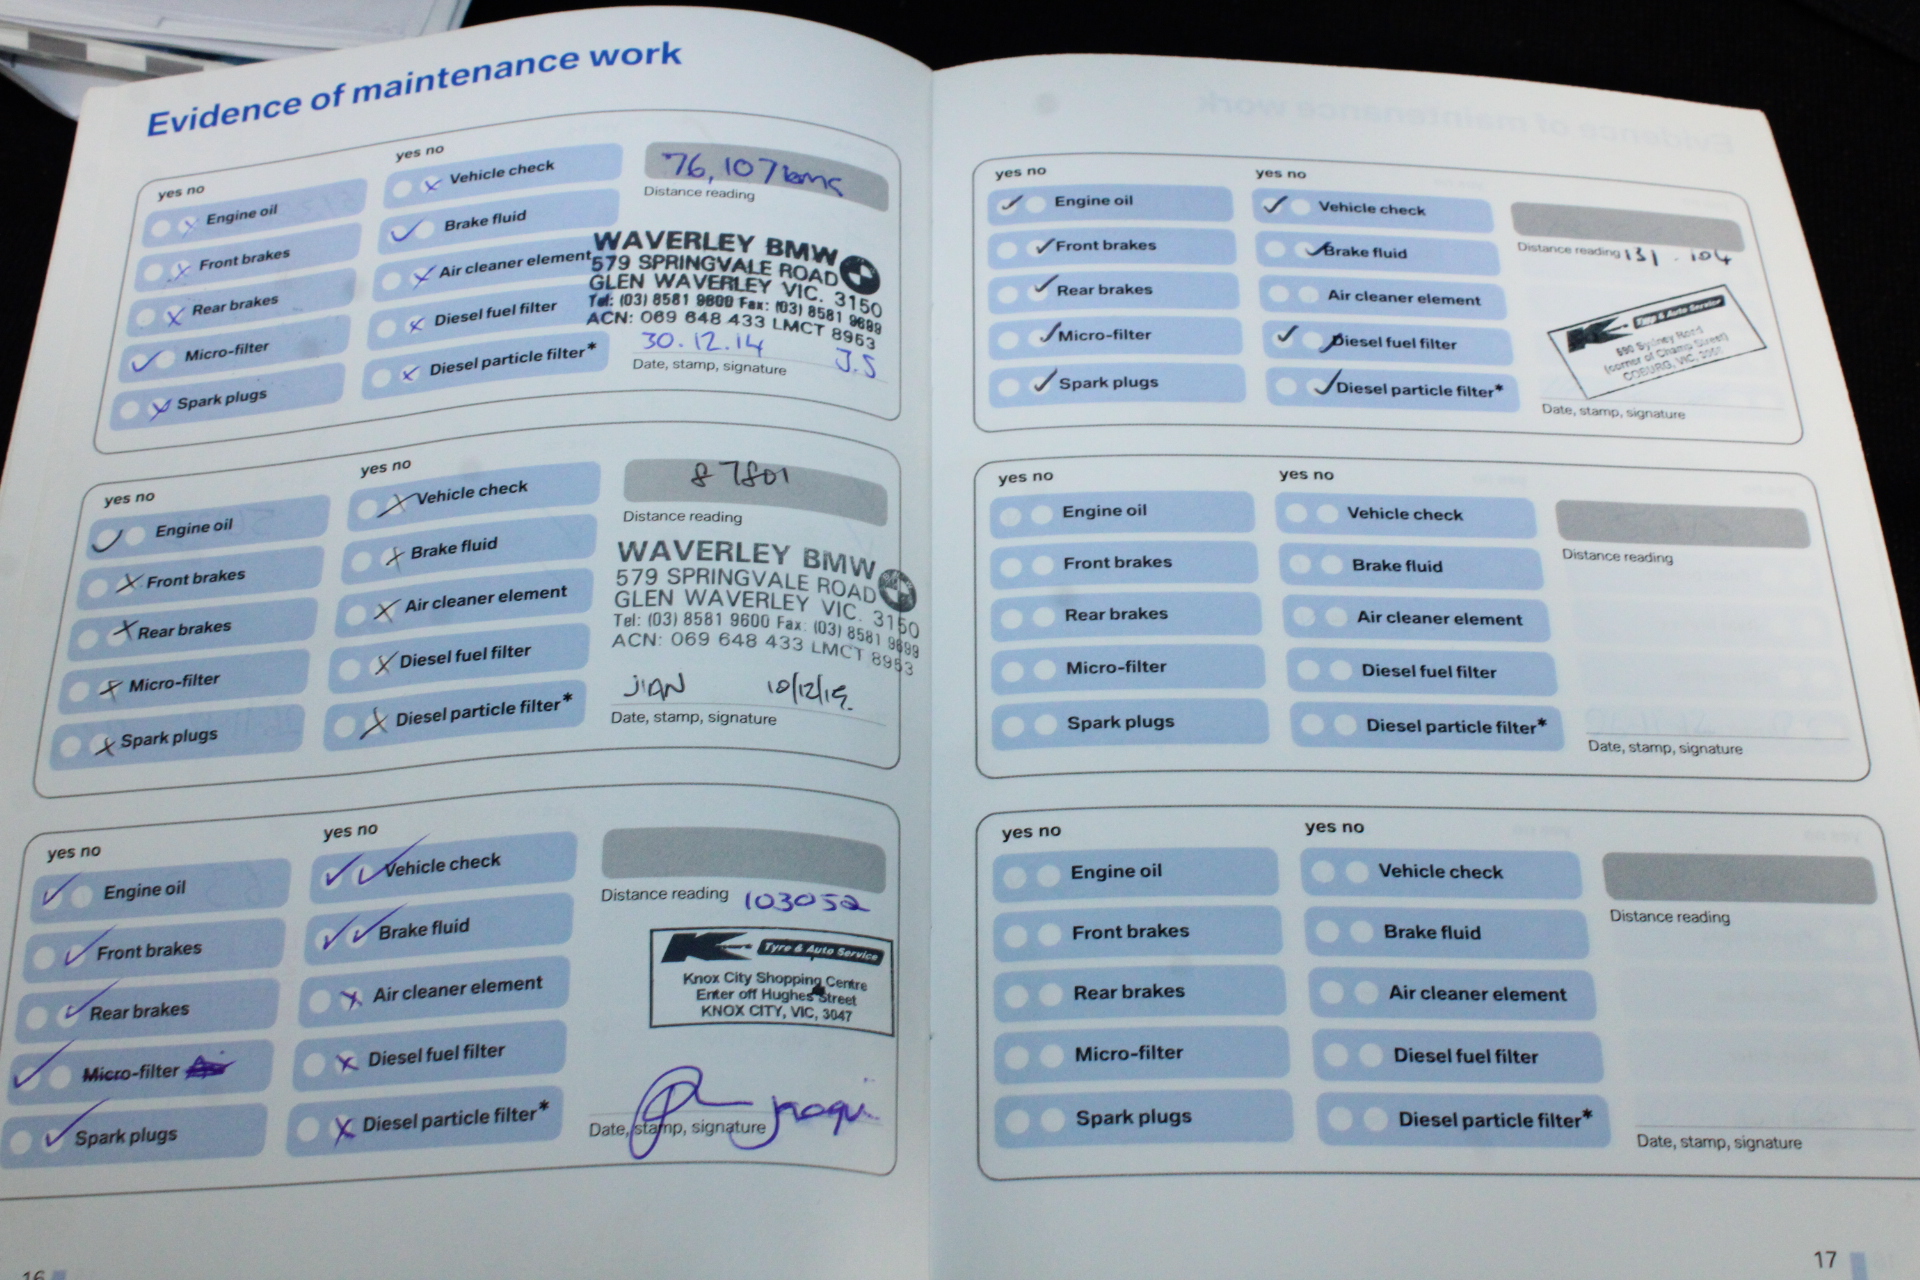 Evidence of maintenance work
yes no
Engine oil
Front brakes
Rear brakes
Micro-filter
Spark plugs
yes no
Vehicle check
Brake fluid
Air cleaner element
Diesel fuel filter
Diesel particle filter*
76,107kms
Distance reading
WAVERLEY BMW
579 SPRINGVALE ROAD
GLEN WAVERLEY VIC. 3150
Tel: (03) 8581 9600 Fax: (03) 8581 9699
ACN: 069 648 433 LMCT 8963
30.12.14 J.S
Date, stamp, signature
yes no
Engine oil
Front brakes
Rear brakes
Micro-filter
Spark plugs
yes no
Vehicle check
Brake fluid
Air cleaner element
Diesel fuel filter
Diesel particle filter*
87801
Distance reading
WAVERLEY BMW
579 SPRINGVALE ROAD
GLEN WAVERLEY VIC. 3150
Tel: (03) 8581 9600 Fax: (03) 8581 9699
ACN: 069 648 433 LMCT 8963
JIAN
Date, stamp, signature
yes no
Engine oil
Front brakes
Rear brakes
Micro-filter
Spark plugs
yes no
Vehicle check
Brake fluid
Air cleaner element
Diesel fuel filter
Diesel particle filter*
Distance reading 103052
K Tyre & Auto Service
Knox City Shopping Centre
Enter off Hughes Street
KNOX CITY, VIC, 3047
Date, stamp, signature
16
yes no
Engine oil
Front brakes
Rear brakes
Micro-filter
Spark plugs
yes no
Vehicle check
Brake fluid
Air cleaner element
Diesel fuel filter
Diesel particle filter*
Distance reading 131.104
K Tyre & Auto Service
Sydney Road
(corner of Champ Street)
COBURG, VIC,
Date, stamp, signature
yes no
Engine oil
Front brakes
Rear brakes
Micro-filter
Spark plugs
yes no
Vehicle check
Brake fluid
Air cleaner element
Diesel fuel filter
Diesel particle filter*
Distance reading
Date, stamp, signature
yes no
Engine oil
Front brakes
Rear brakes
Micro-filter
Spark plugs
yes no
Vehicle check
Brake fluid
Air cleaner element
Diesel fuel filter
Diesel particle filter*
Distance reading
Date, stamp, signature
17